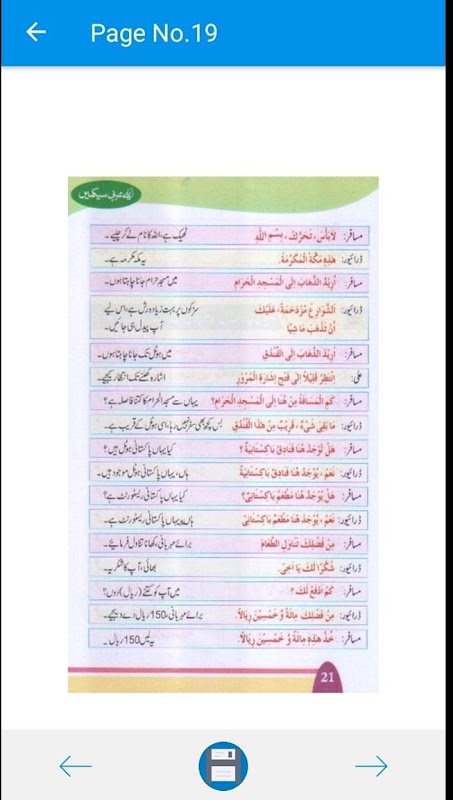 Page No.19
آیئے عربی سیکھیں
مسافر: لَابَأْسَ، تَحَرَّكْ، بِسْمِ اللّٰهِ ٹھیک ہے، اللہ کا نام لے کر چلیے۔
ڈرائیور: هٰذِهِ مَكَّةُ الْمُكَرَّمَةُ. یہ مکہ مکرمہ ہے۔
مسافر: اُرِيْدُ الذَّهَابَ اِلَى الْمَسْجِدِ الْحَرَامِ میں مسجد حرام جانا چاہتا ہوں۔
ڈرائیور: اَلشَّوَارِعُ مُزْدَحِمَةٌ، عَلَيْكَ سڑکوں پر بہت زیادہ رش ہے، اس لیے
اَنْ تَذْهَبَ مَاشِيًا آپ پیدل ہی جائیں۔
مسافر: اُرِيْدُ الذَّهَابَ اِلَى الْفُنْدُقِ میں ہوٹل تک جانا چاہتا ہوں۔
علی: اِنْتَظِرْ قَلِيْلًا اِلٰى فَتْحِ اِشَارَةِ الْمُرُوْرِ اشارہ کھلنے تک انتظار کیجیے۔
مسافر: كَمِ الْمَسَافَةُ مِنْ هُنَا اِلَى الْمَسْجِدِ الْحَرَامِ؟ یہاں سے مسجد الحرام کا کتنا فاصلہ ہے؟
ڈرائیور: مَا بَقِيَ شَيْءٌ، قَرِيْبٌ مِنْ هٰذَا الْفُنْدُقِ بس کچھ بھی سفر نہیں رہا، اسی ہوٹل کے قریب ہے۔
مسافر: هَلْ تُوْجَدُ هُنَا فَنَادِقُ بَاكِسْتَانِيَّةٌ؟ کیا یہاں پاکستانی ہوٹل ہیں؟
ڈرائیور: نَعَمْ، يُوْجَدُ هُنَا فَنَادِقُ بَاكِسْتَانِيَّةٌ ہاں، یہاں پاکستانی ہوٹل موجود ہیں۔
مسافر: هَلْ يُوْجَدُ هُنَا مَطْعَمٌ بَاكِسْتَانِيٌّ؟ کیا یہاں پاکستانی ریسٹورنٹ ہے؟
ڈرائیور: نَعَمْ، يُوْجَدُ هُنَا مَطْعَمٌ بَاكِسْتَانِيٌّ ہاں، یہاں پاکستانی ریسٹورنٹ ہے۔
مسافر: مِنْ فَضْلِكَ تَنَاوَلِ الطَّعَامَ برائے مہربانی، کھانا تناول فرمائیے۔
ڈرائیور: شُكْرًا لَكَ يَا اَخِيْ. بھائی، آپ کا شکریہ۔
مسافر: كَمْ اَدْفَعُ لَكَ؟ میں آپ کو کتنے (ریال) دوں؟
ڈرائیور: مِنْ فَضْلِكَ مِائَةً وَّ خَمْسِيْنَ رِيَالًا. برائے مہربانی، 150 ریال دے دیجیے۔
مسافر: خُذْ هٰذِهِ مِائَةً وَّ خَمْسِيْنَ رِيَالًا. یہ لیں 150 ریال۔
21